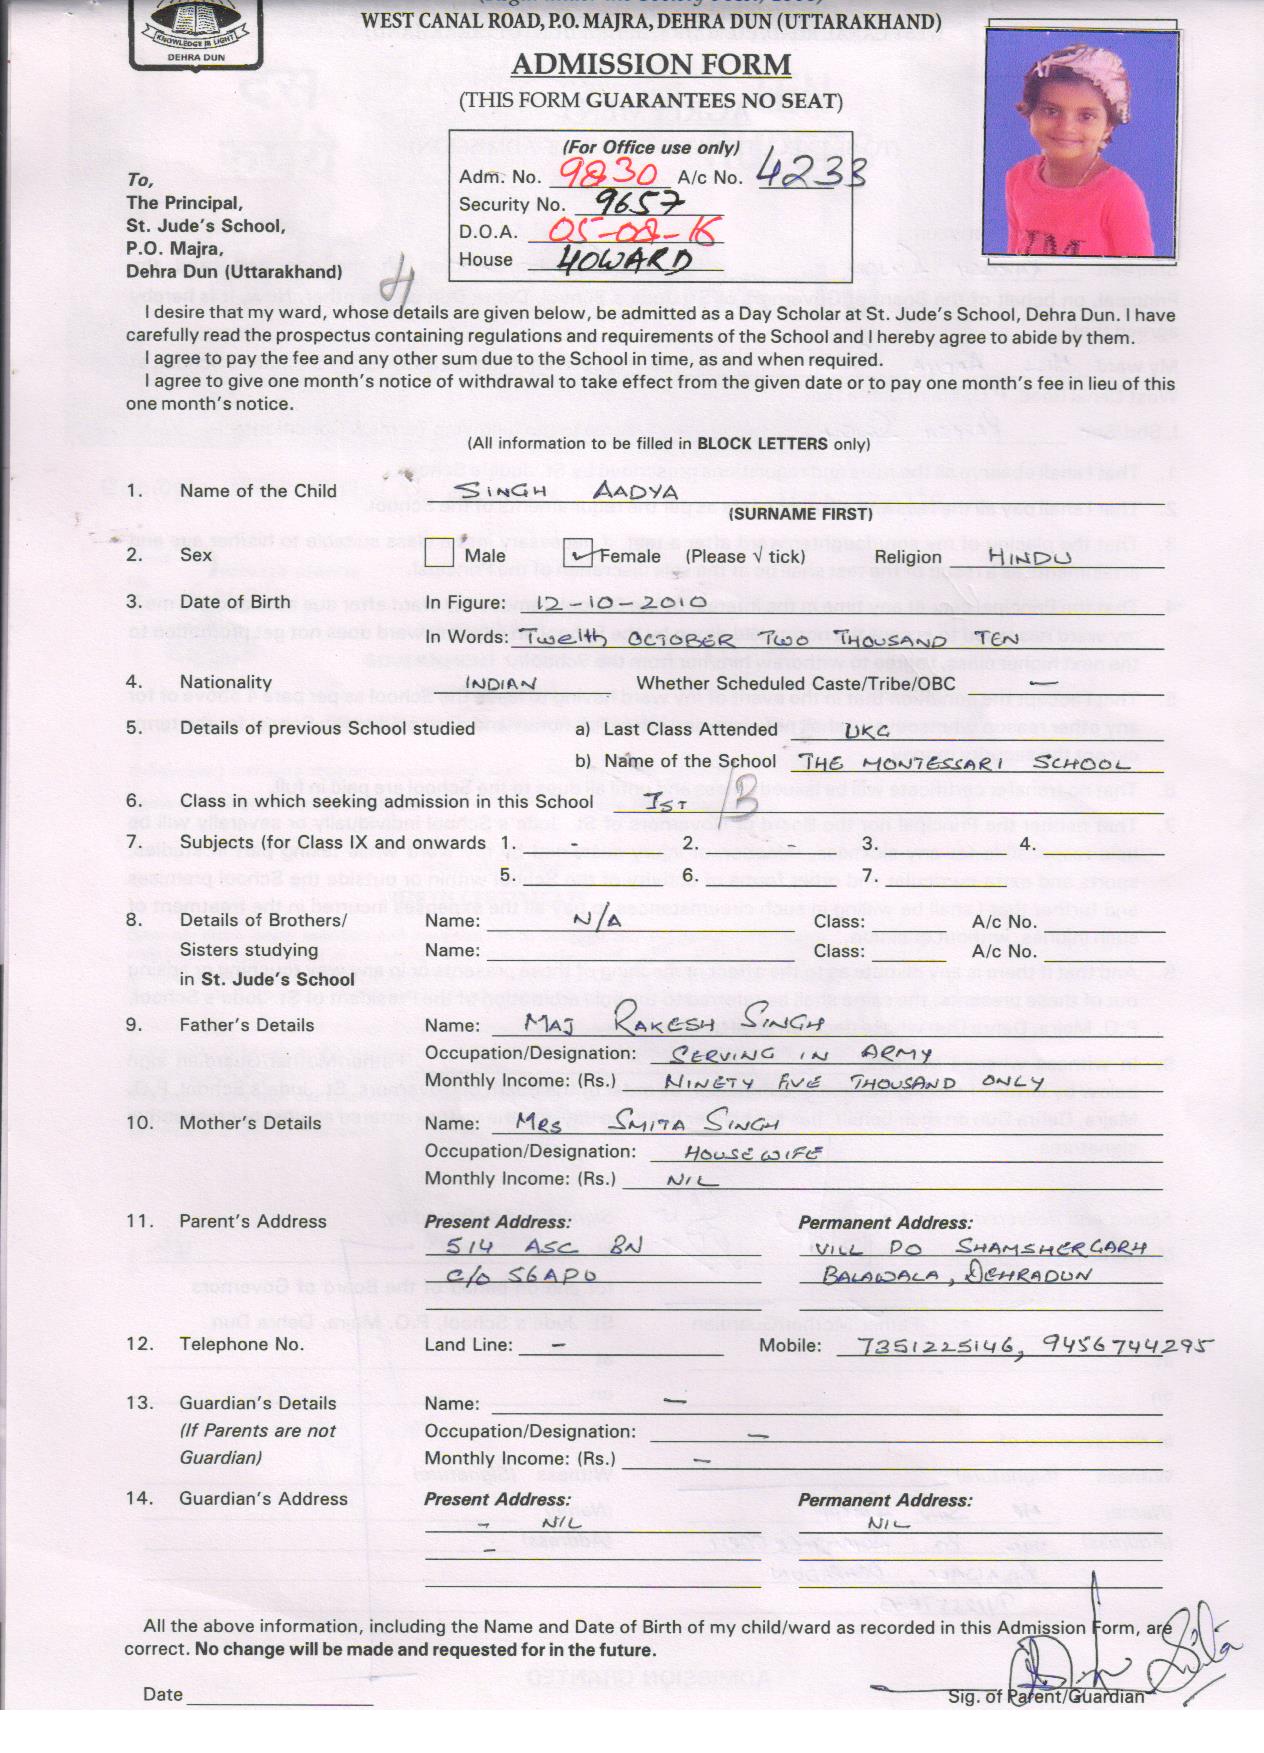 WEST CANAL ROAD, P.O. MAJRA, DEHRA DUN (UTTARAKHAND)
KNOWLEDGE IS LIGHT
DEHRA DUN
ADMISSION FORM
(THIS FORM GUARANTEES NO SEAT)
(For Office use only)
Adm. No. 9830 A/c No. 4233
Security No. 9657
D.O.A. 05-08-16
House HOWARD
To,
The Principal,
St. Jude's School,
P.O. Majra,
Dehra Dun (Uttarakhand)
I desire that my ward, whose details are given below, be admitted as a Day Scholar at St. Jude's School, Dehra Dun. I have
carefully read the prospectus containing regulations and requirements of the School and I hereby agree to abide by them.
I agree to pay the fee and any other sum due to the School in time, as and when required.
I agree to give one month's notice of withdrawal to take effect from the given date or to pay one month's fee in lieu of this
one month's notice.
(All information to be filled in BLOCK LETTERS only)
1. Name of the Child SINGH AADYA
(SURNAME FIRST)
2. Sex Male ✓ Female (Please √ tick) Religion HINDU
3. Date of Birth In Figure: 12-10-2010
In Words: Twelth OCTOBER TWO THOUSAND TEN
4. Nationality INDIAN Whether Scheduled Caste/Tribe/OBC —
5. Details of previous School studied a) Last Class Attended UKG
b) Name of the School THE MONTESSARI SCHOOL
6. Class in which seeking admission in this School IST /B
7. Subjects (for Class IX and onwards 1. - 2. - 3. 4.
5. 6. 7.
8. Details of Brothers/ Name: N/A Class: A/c No.
Sisters studying Name: Class: A/c No.
in St. Jude's School
9. Father's Details Name: MAJ RAKESH SINGH
Occupation/Designation: SERVING IN ARMY
Monthly Income: (Rs.) NINETY FIVE THOUSAND ONLY
10. Mother's Details Name: MRS SMITA SINGH
Occupation/Designation: HOUSEWIFE
Monthly Income: (Rs.) NIL
11. Parent's Address Present Address: Permanent Address:
514 ASC BN VILL PO SHAMSHERGARH
C/O 56 APO BALAWALA, DEHRADUN
12. Telephone No. Land Line: — Mobile: 7351225146, 9456744295
13. Guardian's Details Name: —
(If Parents are not Occupation/Designation: —
Guardian) Monthly Income: (Rs.) —
14. Guardian's Address Present Address: Permanent Address:
- NIL NIL
-
All the above information, including the Name and Date of Birth of my child/ward as recorded in this Admission Form, are
correct. No change will be made and requested for in the future.
Date Sig. of Parent/Guardian